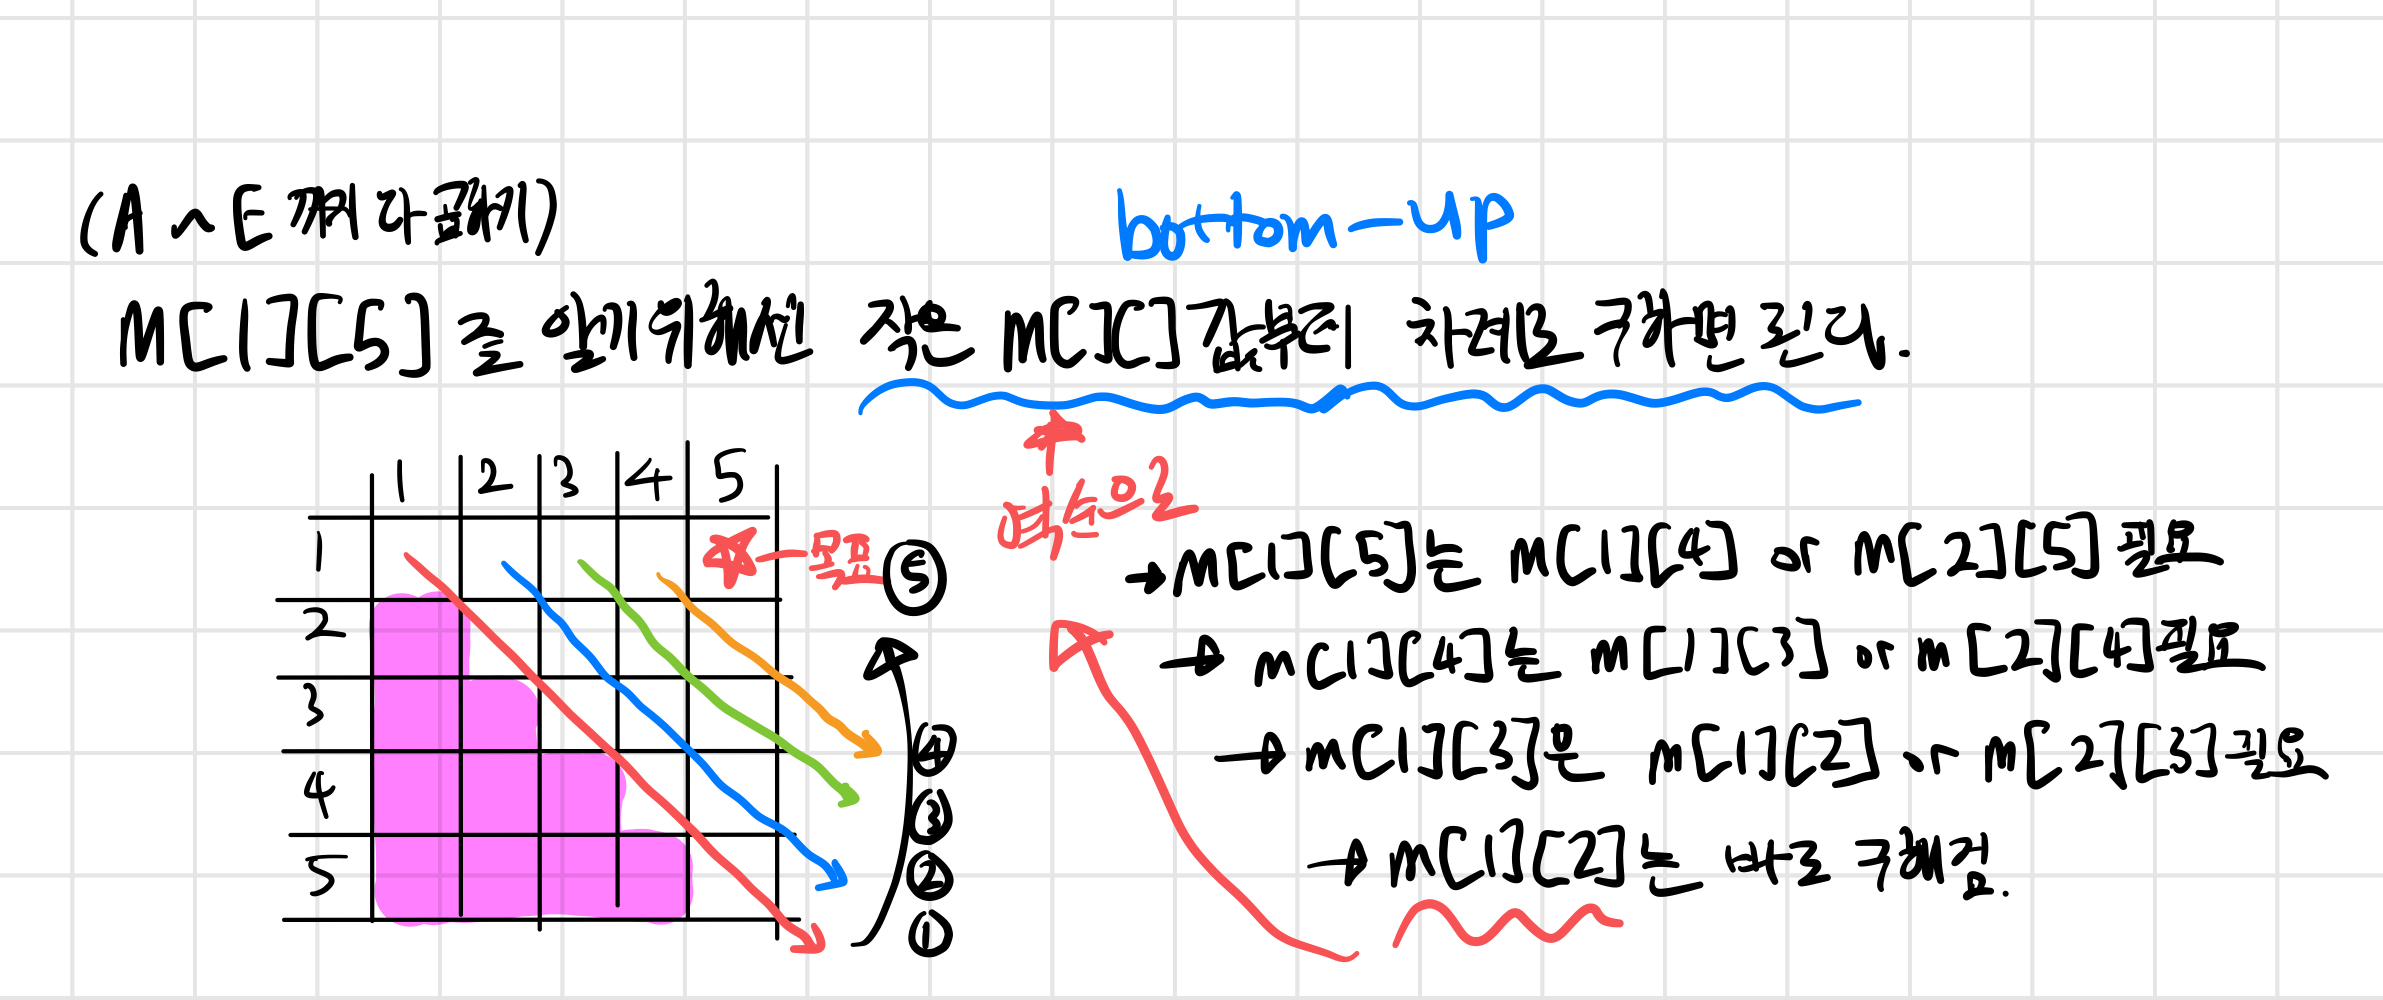 (A ~ E 까지 다 곱하기)
bottom-up
M[1][5]를 알기위해선 작은 m[][]값부터 차례로 구하면 된다.
역순으로
1 2 3 4 5
1
목표 ⑤
2
3
4
5
④
③
②
①
→ m[1][5]는 m[1][4] or m[2][5] 필요
→ m[1][4]는 m[1][3] or m[2][4] 필요
→ m[1][3]은 m[1][2] or m[2][3] 필요
→ m[1][2]는 바로 구해짐.